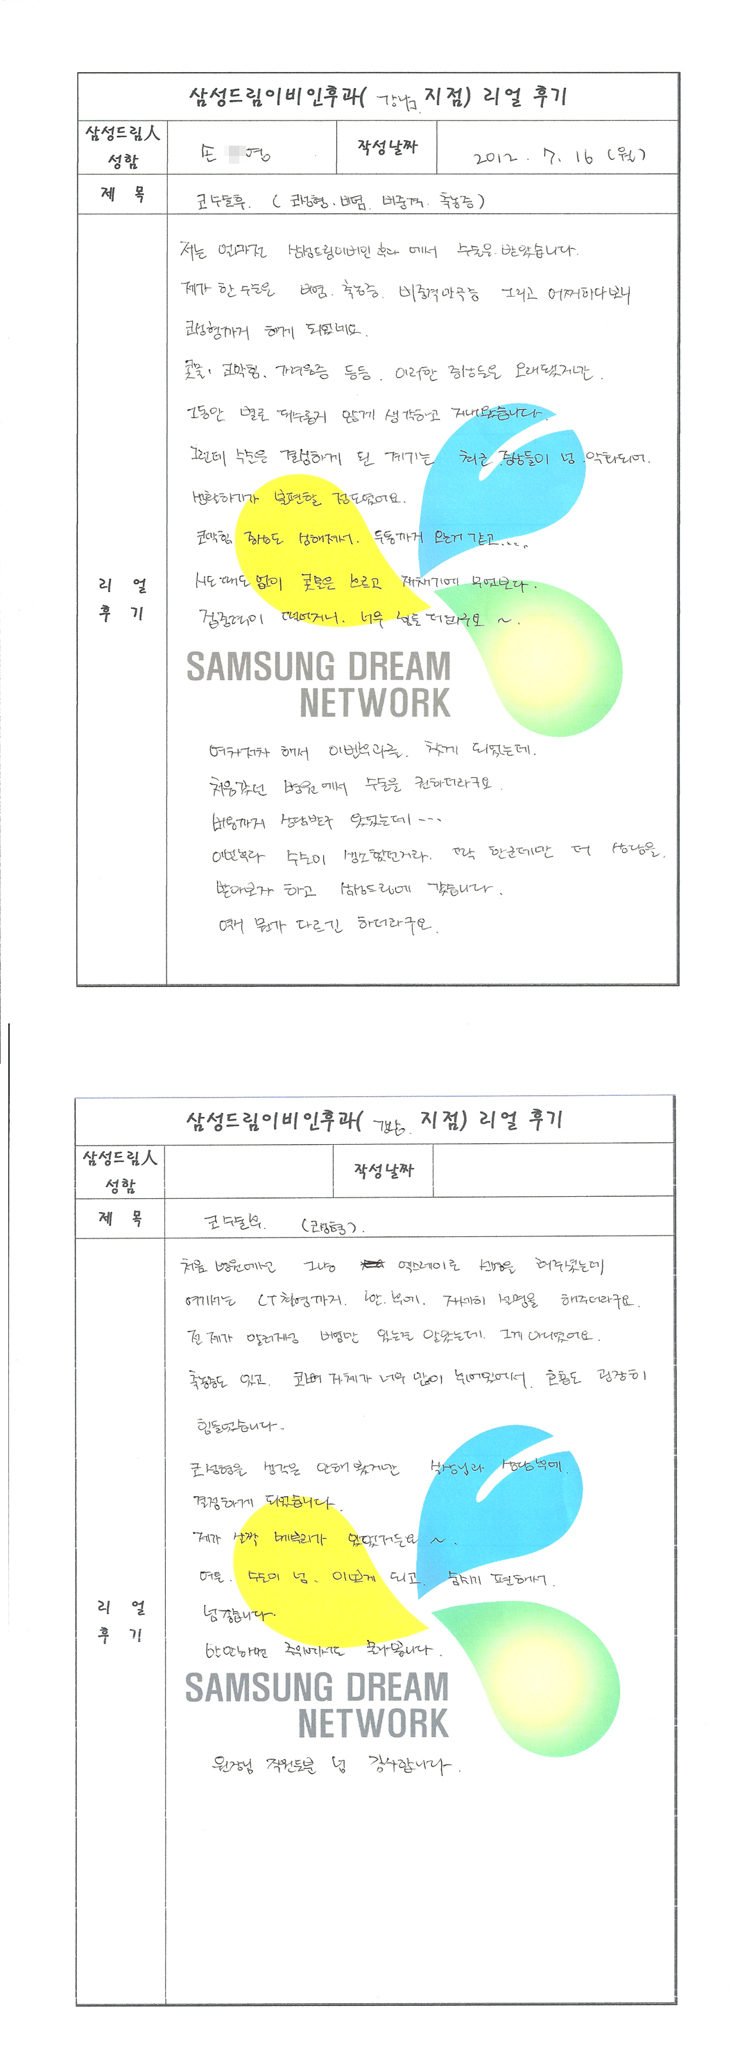 삼성드림이비인후과( 강남 지점) 리얼 후기
삼성드림人 성함
손 영
작성날짜
2012. 7. 16 (월)
제 목
코수술후. ( 코성형. 비염. 비중격. 축농증)
리 얼 후 기
저는 얼마전 삼성드림이비인후과에서 수술을 받았습니다.
제가 한 수술은 비염. 축농증. 비중격만곡증 그리고 어찌하다보니
코성형까지 하게 되었네요.
콧물, 코막힘, 가려움증 등등. 이러한 증상들은 오래됐지만.
그동안 별로 대수롭지 않게 생각하고 지내왔습니다.
그런데 수술을 결정하게 된 계기는 최근 증상들이 넘 악화되어.
생활하기가 불편할 정도였어요.
코막힘 증상도 심해져서. 두통까지 오는거 같고....
시도때도 없이 콧물은 흐르고 재채기에 무엇보다.
집중력이 떨어지니. 너무 힘들더라구요 ~
SAMSUNG DREAM
NETWORK
여차저차 해서 이비인후과를. 찾게 되었는데.
처음갔던 병원에서 수술을 권하더라구요.
비용까지 상담받구 왔었는데 ---
수술이 생소했던거라. 딱 한군데만 더 상담을.
받아보자 하고 삼성드림에 갔습니다.
역시 뭔가 다르긴 하더라구요.
삼성드림이비인후과( 강남. 지점) 리얼 후기
삼성드림人 성함
작성날짜
제 목
코수술후. (코성형).
리 얼 후 기
처음 병원에선 그냥 엑스레이로 설명을 해주셨는데
여기서는 CT촬영까지. 자세히 설명을 해주더라구요.
전 제가 알러지성 비염만 있는줄 알았는데. 그게 아니었어요.
축농증도 있고. 코뼈 자체가 너무 많이 휘어있어서. 호흡도 굉장히
힘들었습니다.
코성형은 생각은 안해봤지만 상담후에.
결정하게 되었습니다.
제가 살짝 매부리가 있었거든요 ~.
여튼. 수술이 넘. 이쁘게 되고. 숨쉬기 편해서.
넘 좋습니다.
주위에서도 물어봅니다.
SAMSUNG DREAM
NETWORK
원장님 직원분들 넘 감사합니다.